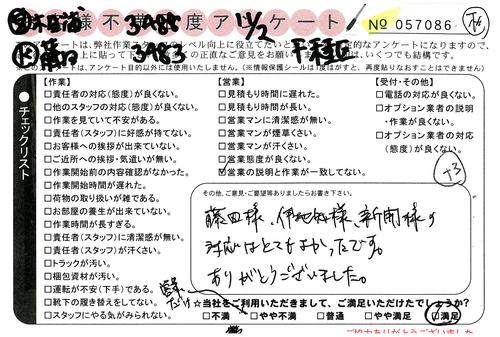 様不満度アンケート
11/2
No 057086
3985
3983
千種区
ンケートは、弊社作業スタッフのレベル向上に役立てたいと
定的なアンケートになりますので、
チェックリスト
【作業】
□責任者の対応(態度)が良くない。
□他のスタッフの対応(態度)が良くない。
□作業を見ていて不安がある。
□責任者(スタッフ)に好感が持てない。
□お客様への挨拶が出来ていない。
□ご近所への挨拶・気遣いが無い。
□作業開始前の内容確認がなかった。
□作業開始時間が遅れた。
□荷物の取り扱いが雑である。
□お部屋の養生が出来ていない。
□作業時間が長すぎる。
□責任者(スタッフ)に清潔感が無い。
□責任者(スタッフ)が汗くさい。
□トラックが汚い。
□梱包資材が汚い。
□運転が不安(下手)である。
□靴下の履き替えをしてない。
□スタッフにやる気がみられない。
【営業】
□見積もり時間に遅れた。
□見積もり時間が長い。
□営業マンに清潔感が無い。
□営業マンが煙草くさい。
□営業マンが汗くさい。
□営業態度が良くない。
□営業の説明と作業が一致してない。
【受付・その他】
□電話の対応が良くない。
□オプション業者の説明
・作業が良くない。
□オプション業者の対応
(態度)が良くない。
+3
その他、ご意見・ご要望等ありましたらお書き下さい。
藤田様、伊地知様、新開様の
対応はとてもよかったです。
ありがとうございました。
営業だけ
☆当社をご利用いただきまして、ご満足いただけたでしょうか?
□不満 □やや不満 □普通 □やや満足 □満足
ご協力ありがとうございました